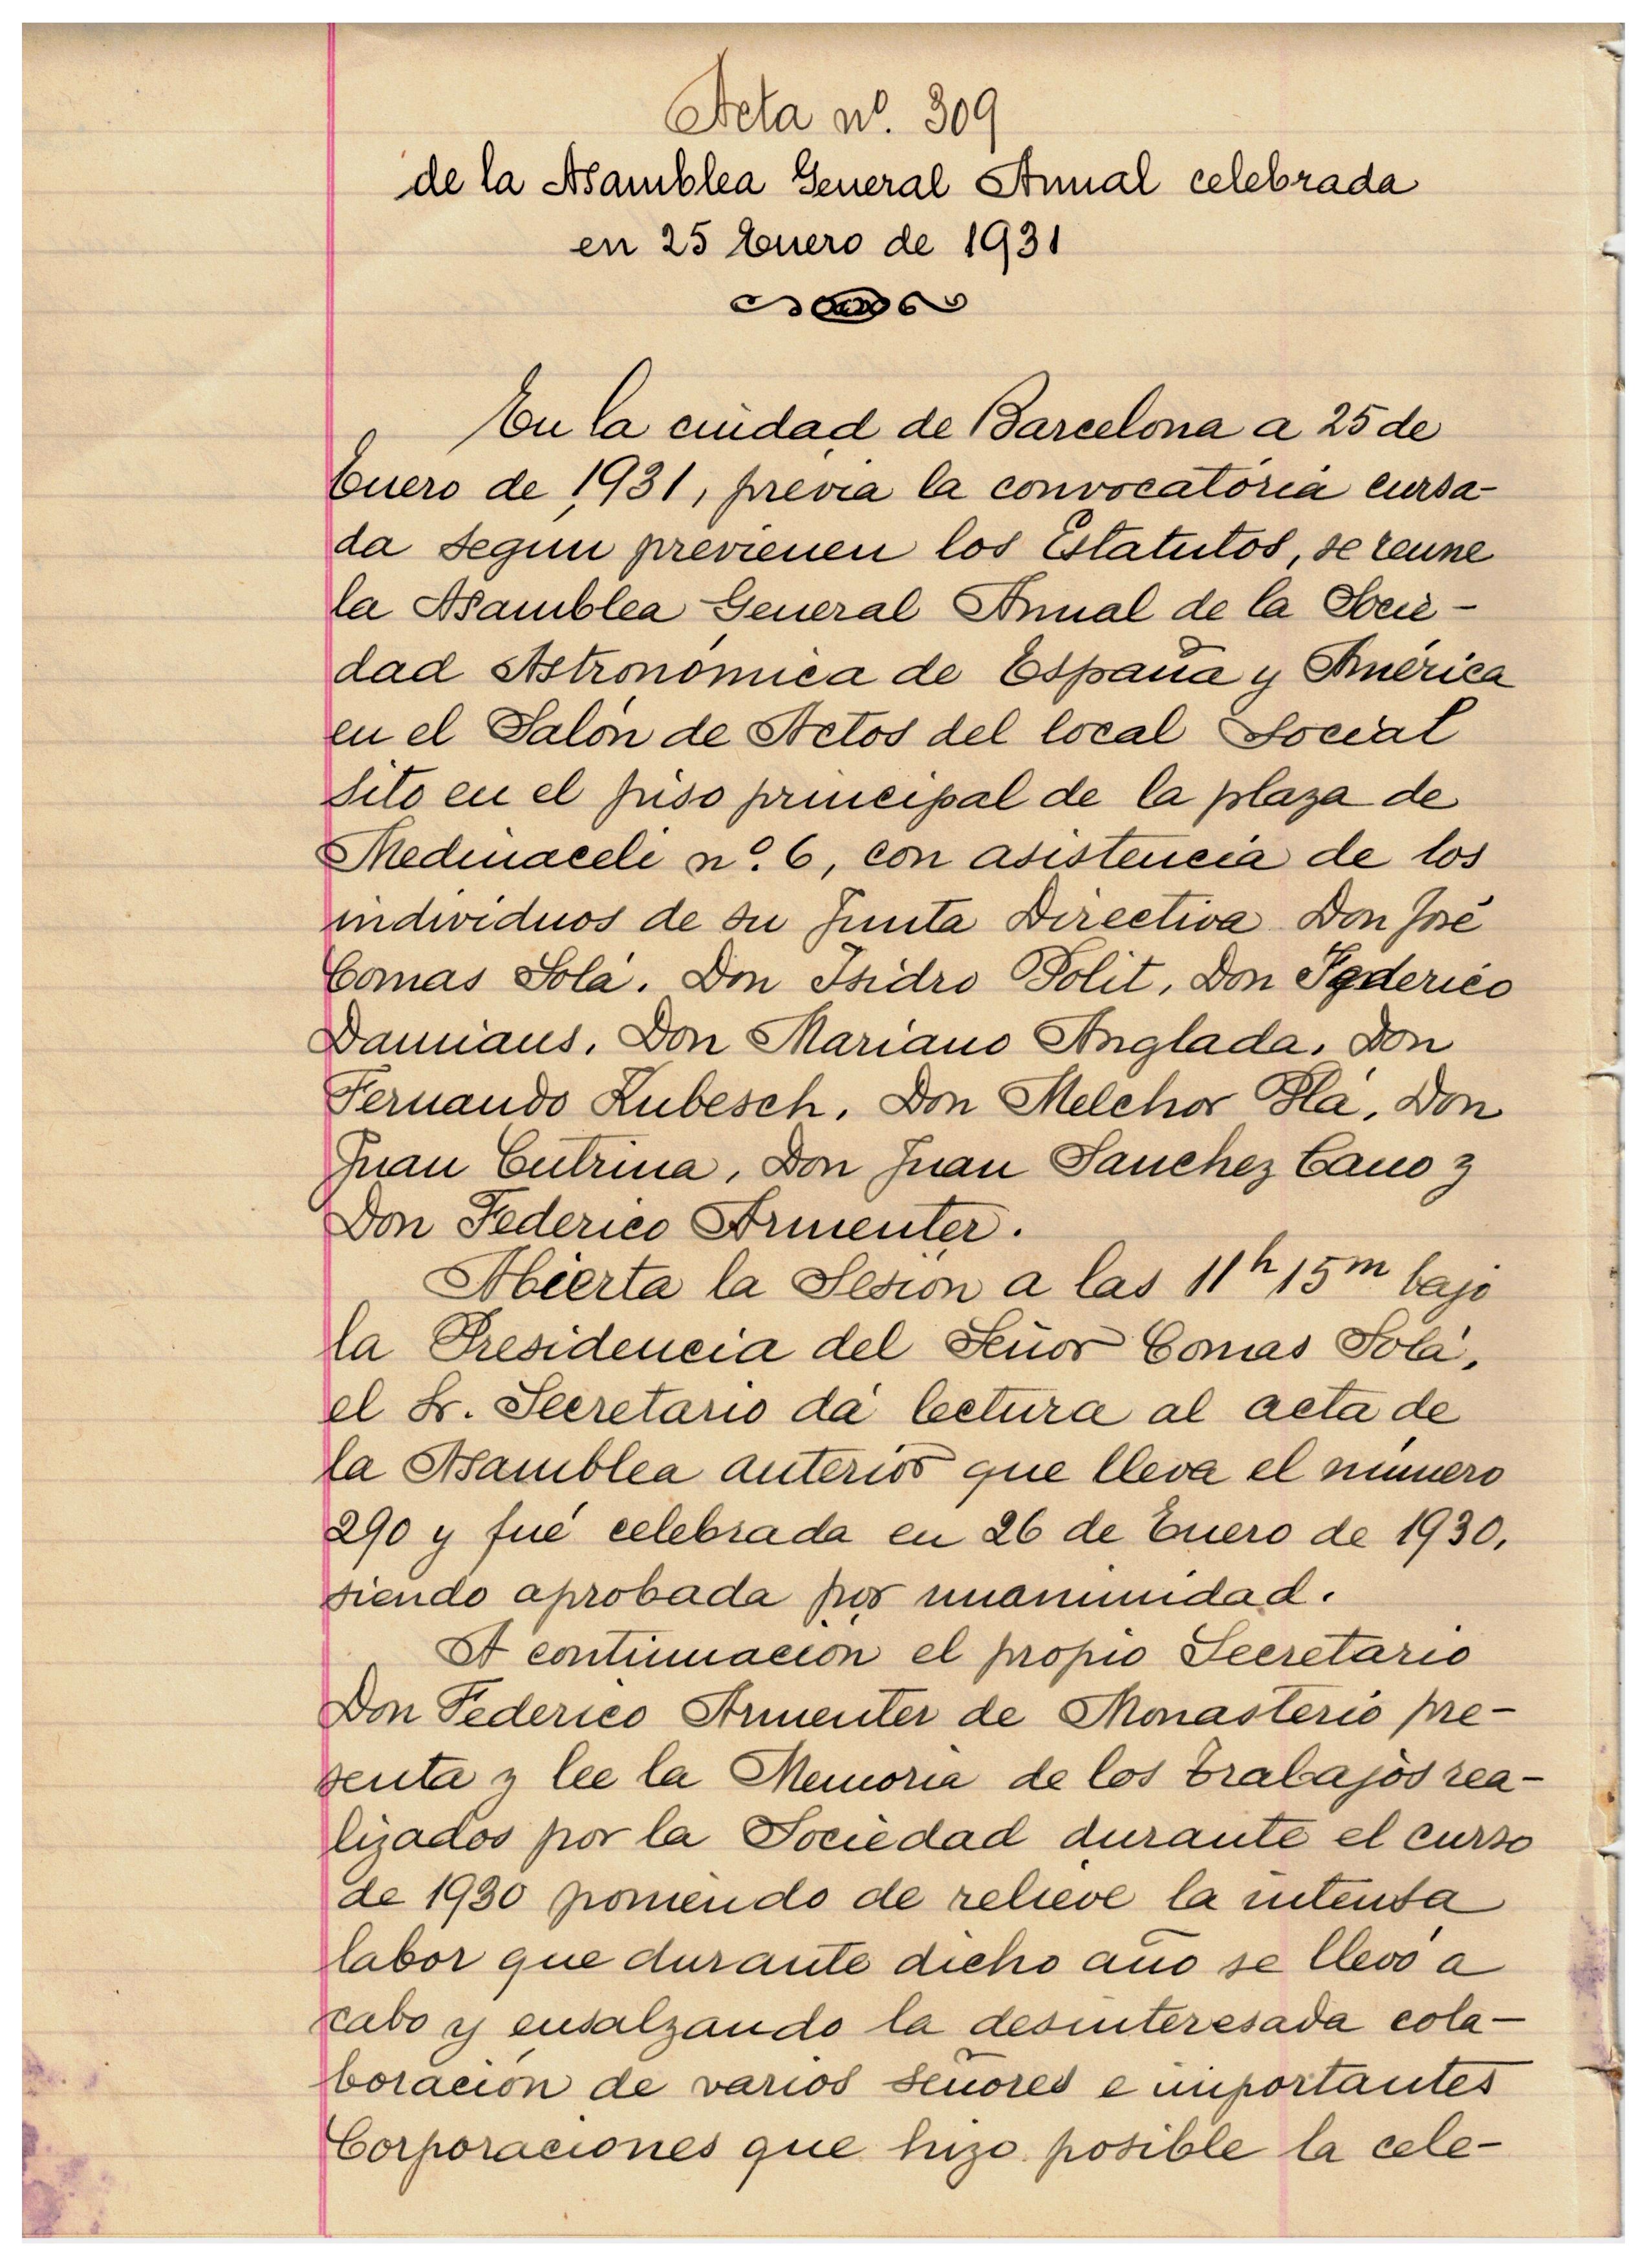 Acta nº. 309
de la Asamblea General Anual celebrada
en 25 Enero de 1931
En la ciudad de Barcelona a 25 de
Enero de 1931, prévia la convocatória cursa-
da según previenen los Estatutos, se reune
la Asamblea General Anual de la Socie-
dad Astronómica de España y América
en el Salón de Actos del local Social
sito en el piso principal de la plaza de
Medinaceli nº. 6, con asistencia de los
individuos de su Junta Directiva Don José
Comas Solá. Don Isidro Polit, Don Federico
Damians. Don Mariano Anglada, Don
Fernando Kubesch, Don Melchor Plá, Don
Juan Cutrina, Don Juan Sanchez Cano y
Don Federico Armenter.
Abierta la Sesión a las 11h 15m bajo
la Presidencia del Señor Comas Solá,
el Sr. Secretario dá lectura al acta de
la Asamblea anterior que lleva el número
290 y fué celebrada en 26 de Enero de 1930,
siendo aprobada por unanimidad.
A continuación el propio Secretario
Don Federico Armenter de Monasterio pre-
senta y lee la Memoria de los trabajos rea-
lizados por la Sociedad durante el curso
de 1930 poniendo de relieve la intensa
labor que durante dicho año se llevó a
cabo y ensalzando la desinteresada cola-
boración de varios señores e importantes
Corporaciones que hizo posible la cele-